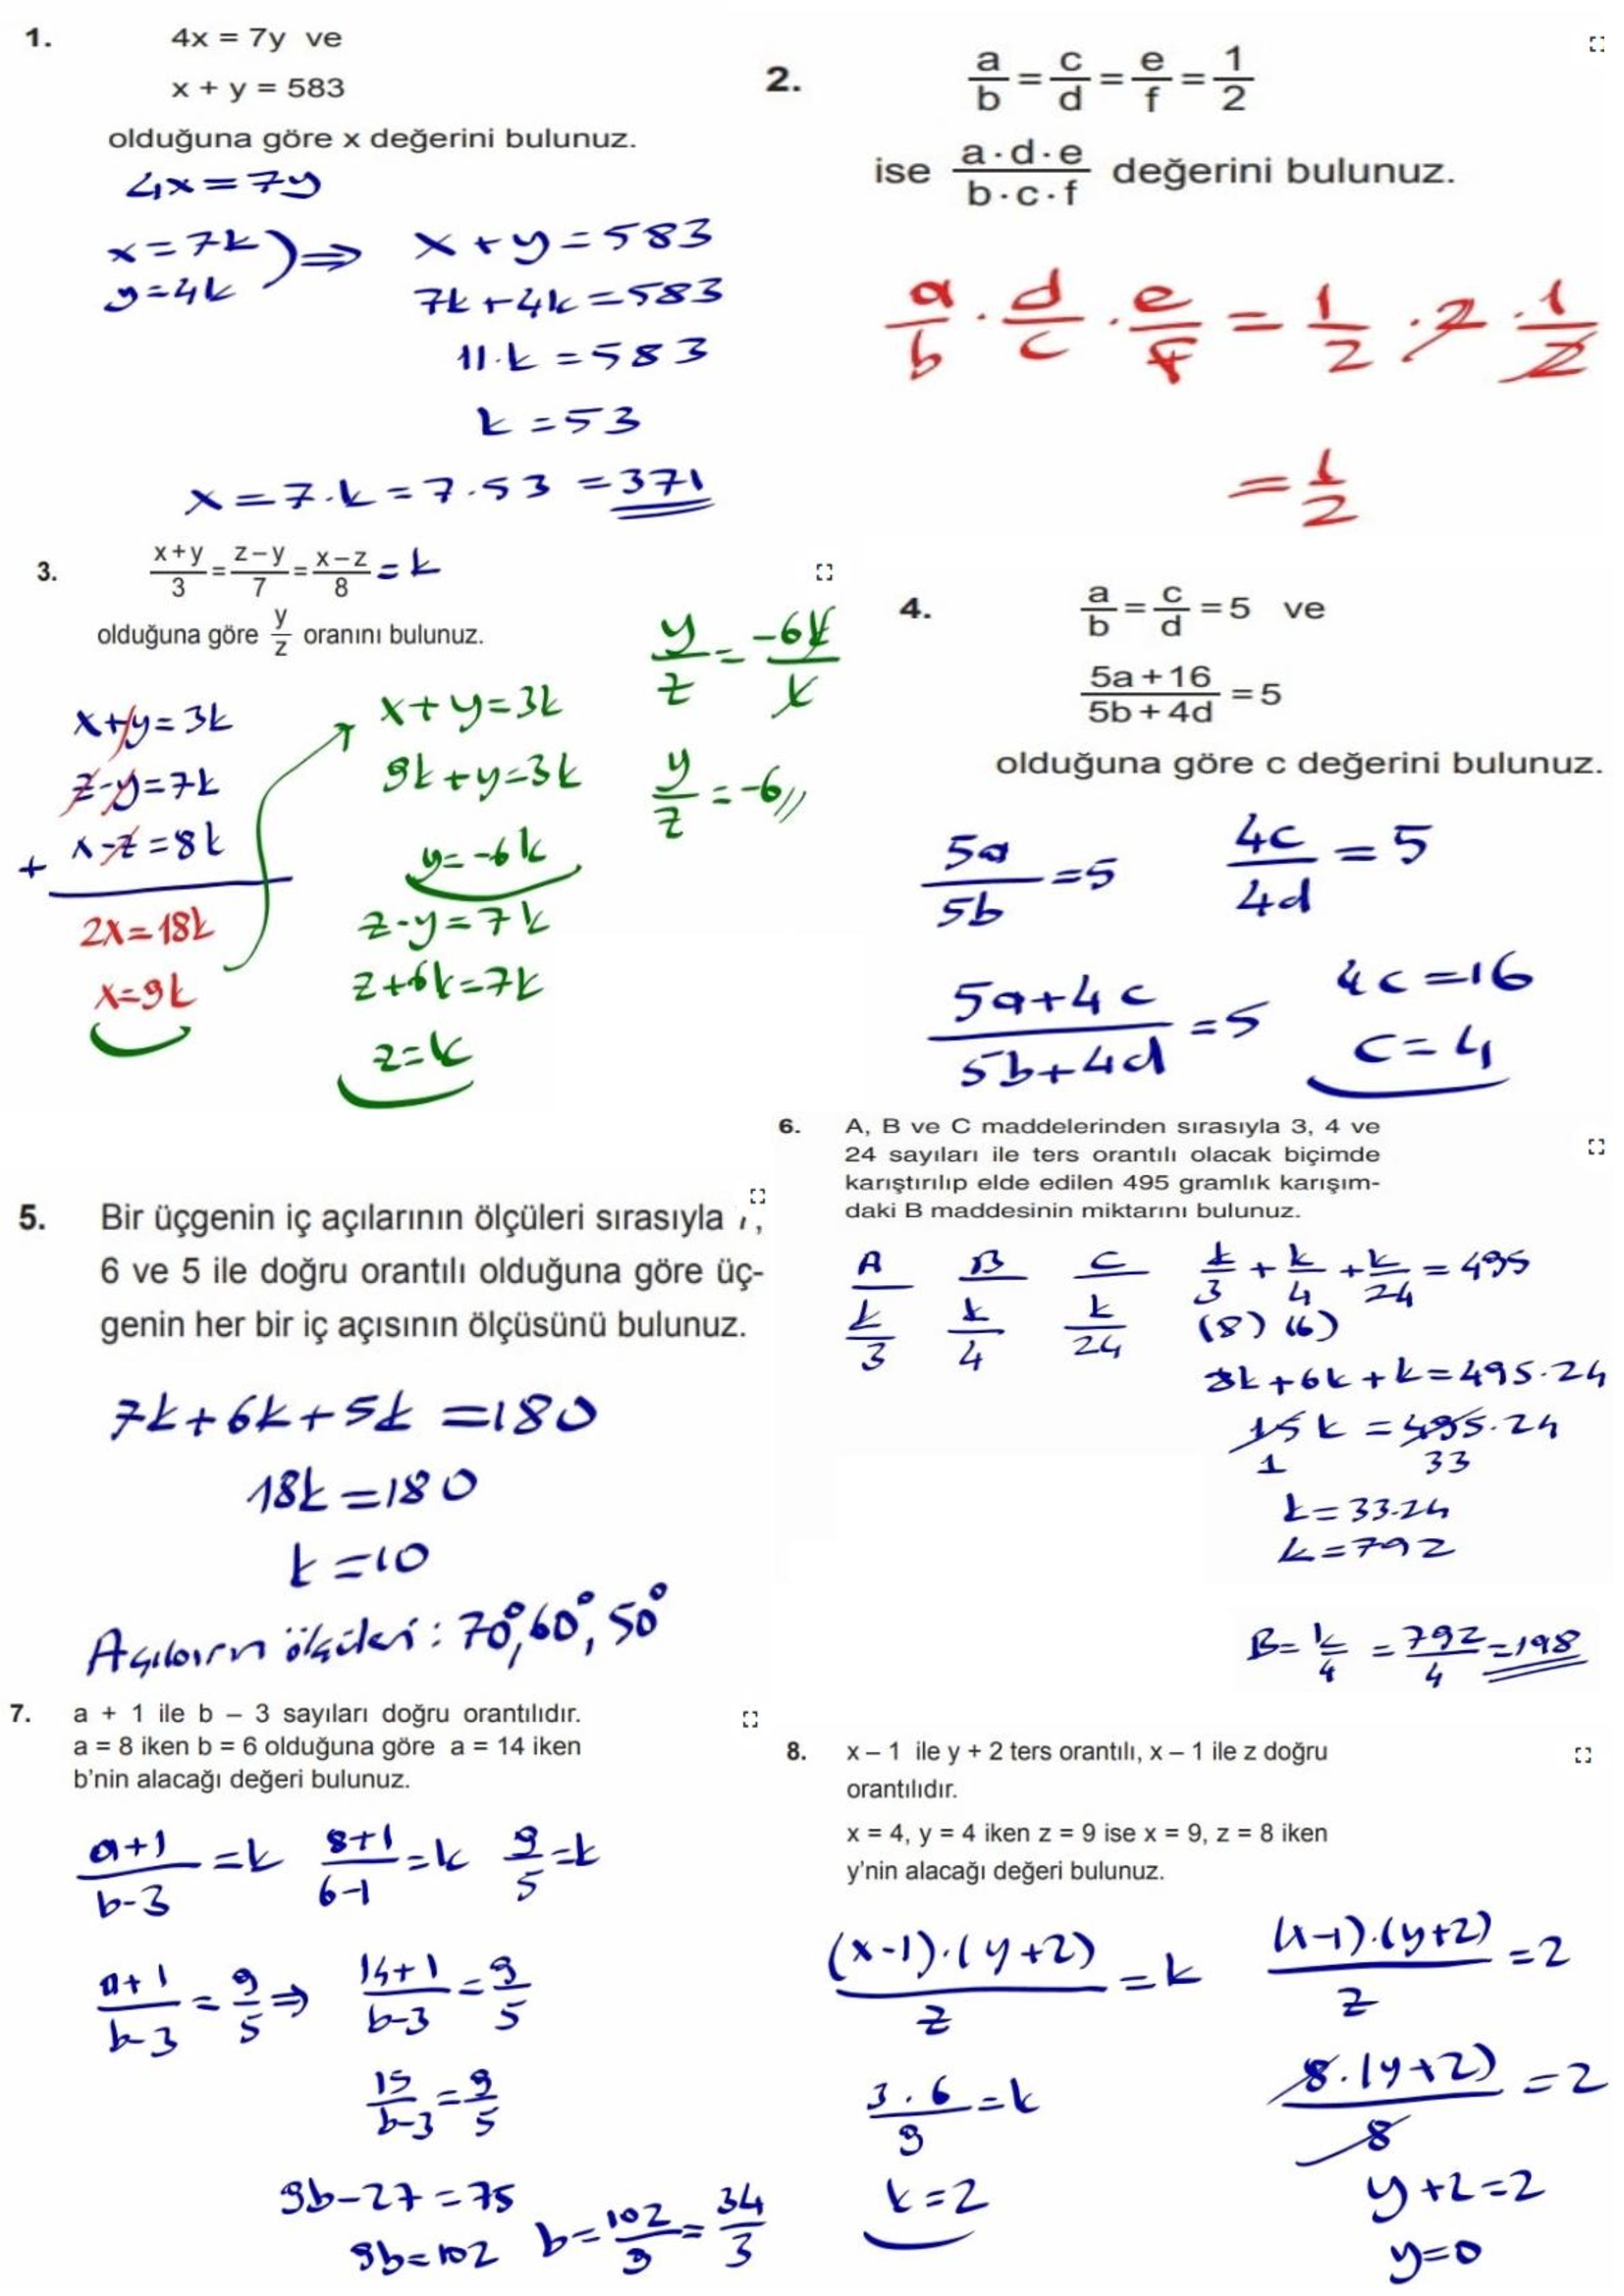 1.
4x = 7y ve
x + y = 583
olduğuna göre x değerini bulunuz.
4x=7y
x=7k
y=4k ) ⇒
x+y=583
7k+4k=583
11.k=583
k=53
x=7.k=7.53=371
2.
a/b = c/d = e/f = 1/2
ise a·d·e / b·c·f değerini bulunuz.
a/b . d/c . e/f = 1/2 . 2 . 1/2
= 1/2
3.
x+y/3 = z–y/7 = x–z/8 = k
olduğuna göre y/z oranını bulunuz.
x+y=3k
z-y=7k
+ x-z=8k
2x=18k
x=9k
x+y=3k
9k+y=3k
y=-6k
z-y=7k
z+6k=7k
z=k
y/z = -6k/k
y/z = -6//
4.
a/b = c/d = 5 ve
5a+16 / 5b+4d = 5
olduğuna göre c değerini bulunuz.
5a/5b = 5
4c/4d = 5
5a+4c / 5b+4d = 5
4c=16
c=4
5. Bir üçgenin iç açılarının ölçüleri sırasıyla 7,
6 ve 5 ile doğru orantılı olduğuna göre üç-
genin her bir iç açısının ölçüsünü bulunuz.
7k+6k+5k=180
18k=180
k=10
Açıların ölçüleri: 70°, 60°, 50°
6. A, B ve C maddelerinden sırasıyla 3, 4 ve
24 sayıları ile ters orantılı olacak biçimde
karıştırılıp elde edilen 495 gramlık karışım-
daki B maddesinin miktarını bulunuz.
A B C
k/3 k/4 k/24
k/3 + k/4 + k/24 = 495
(8) (6)
8k+6k+k=495.24
15k=495.24
1 33
k=33.24
k=792
B= k/4 = 792/4 = 198
7. a + 1 ile b – 3 sayıları doğru orantılıdır.
a = 8 iken b = 6 olduğuna göre a = 14 iken
b'nin alacağı değeri bulunuz.
a+1/b-3 = k 8+1/6-1 = k 9/5 = k
a+1/b-3 = 9/5 ⇒ 14+1/b-3 = 9/5
15/b-3 = 9/5
9b-27=75
9b=102
b= 102/9 = 34/3
8. x – 1 ile y + 2 ters orantılı, x – 1 ile z doğru
orantılıdır.
x = 4, y = 4 iken z = 9 ise x = 9, z = 8 iken
y'nin alacağı değeri bulunuz.
(x-1).(y+2)/z = k
3.6/9 = k
k=2
(x-1).(y+2)/z = 2
8.(y+2)/8 = 2
y+2=2
y=0